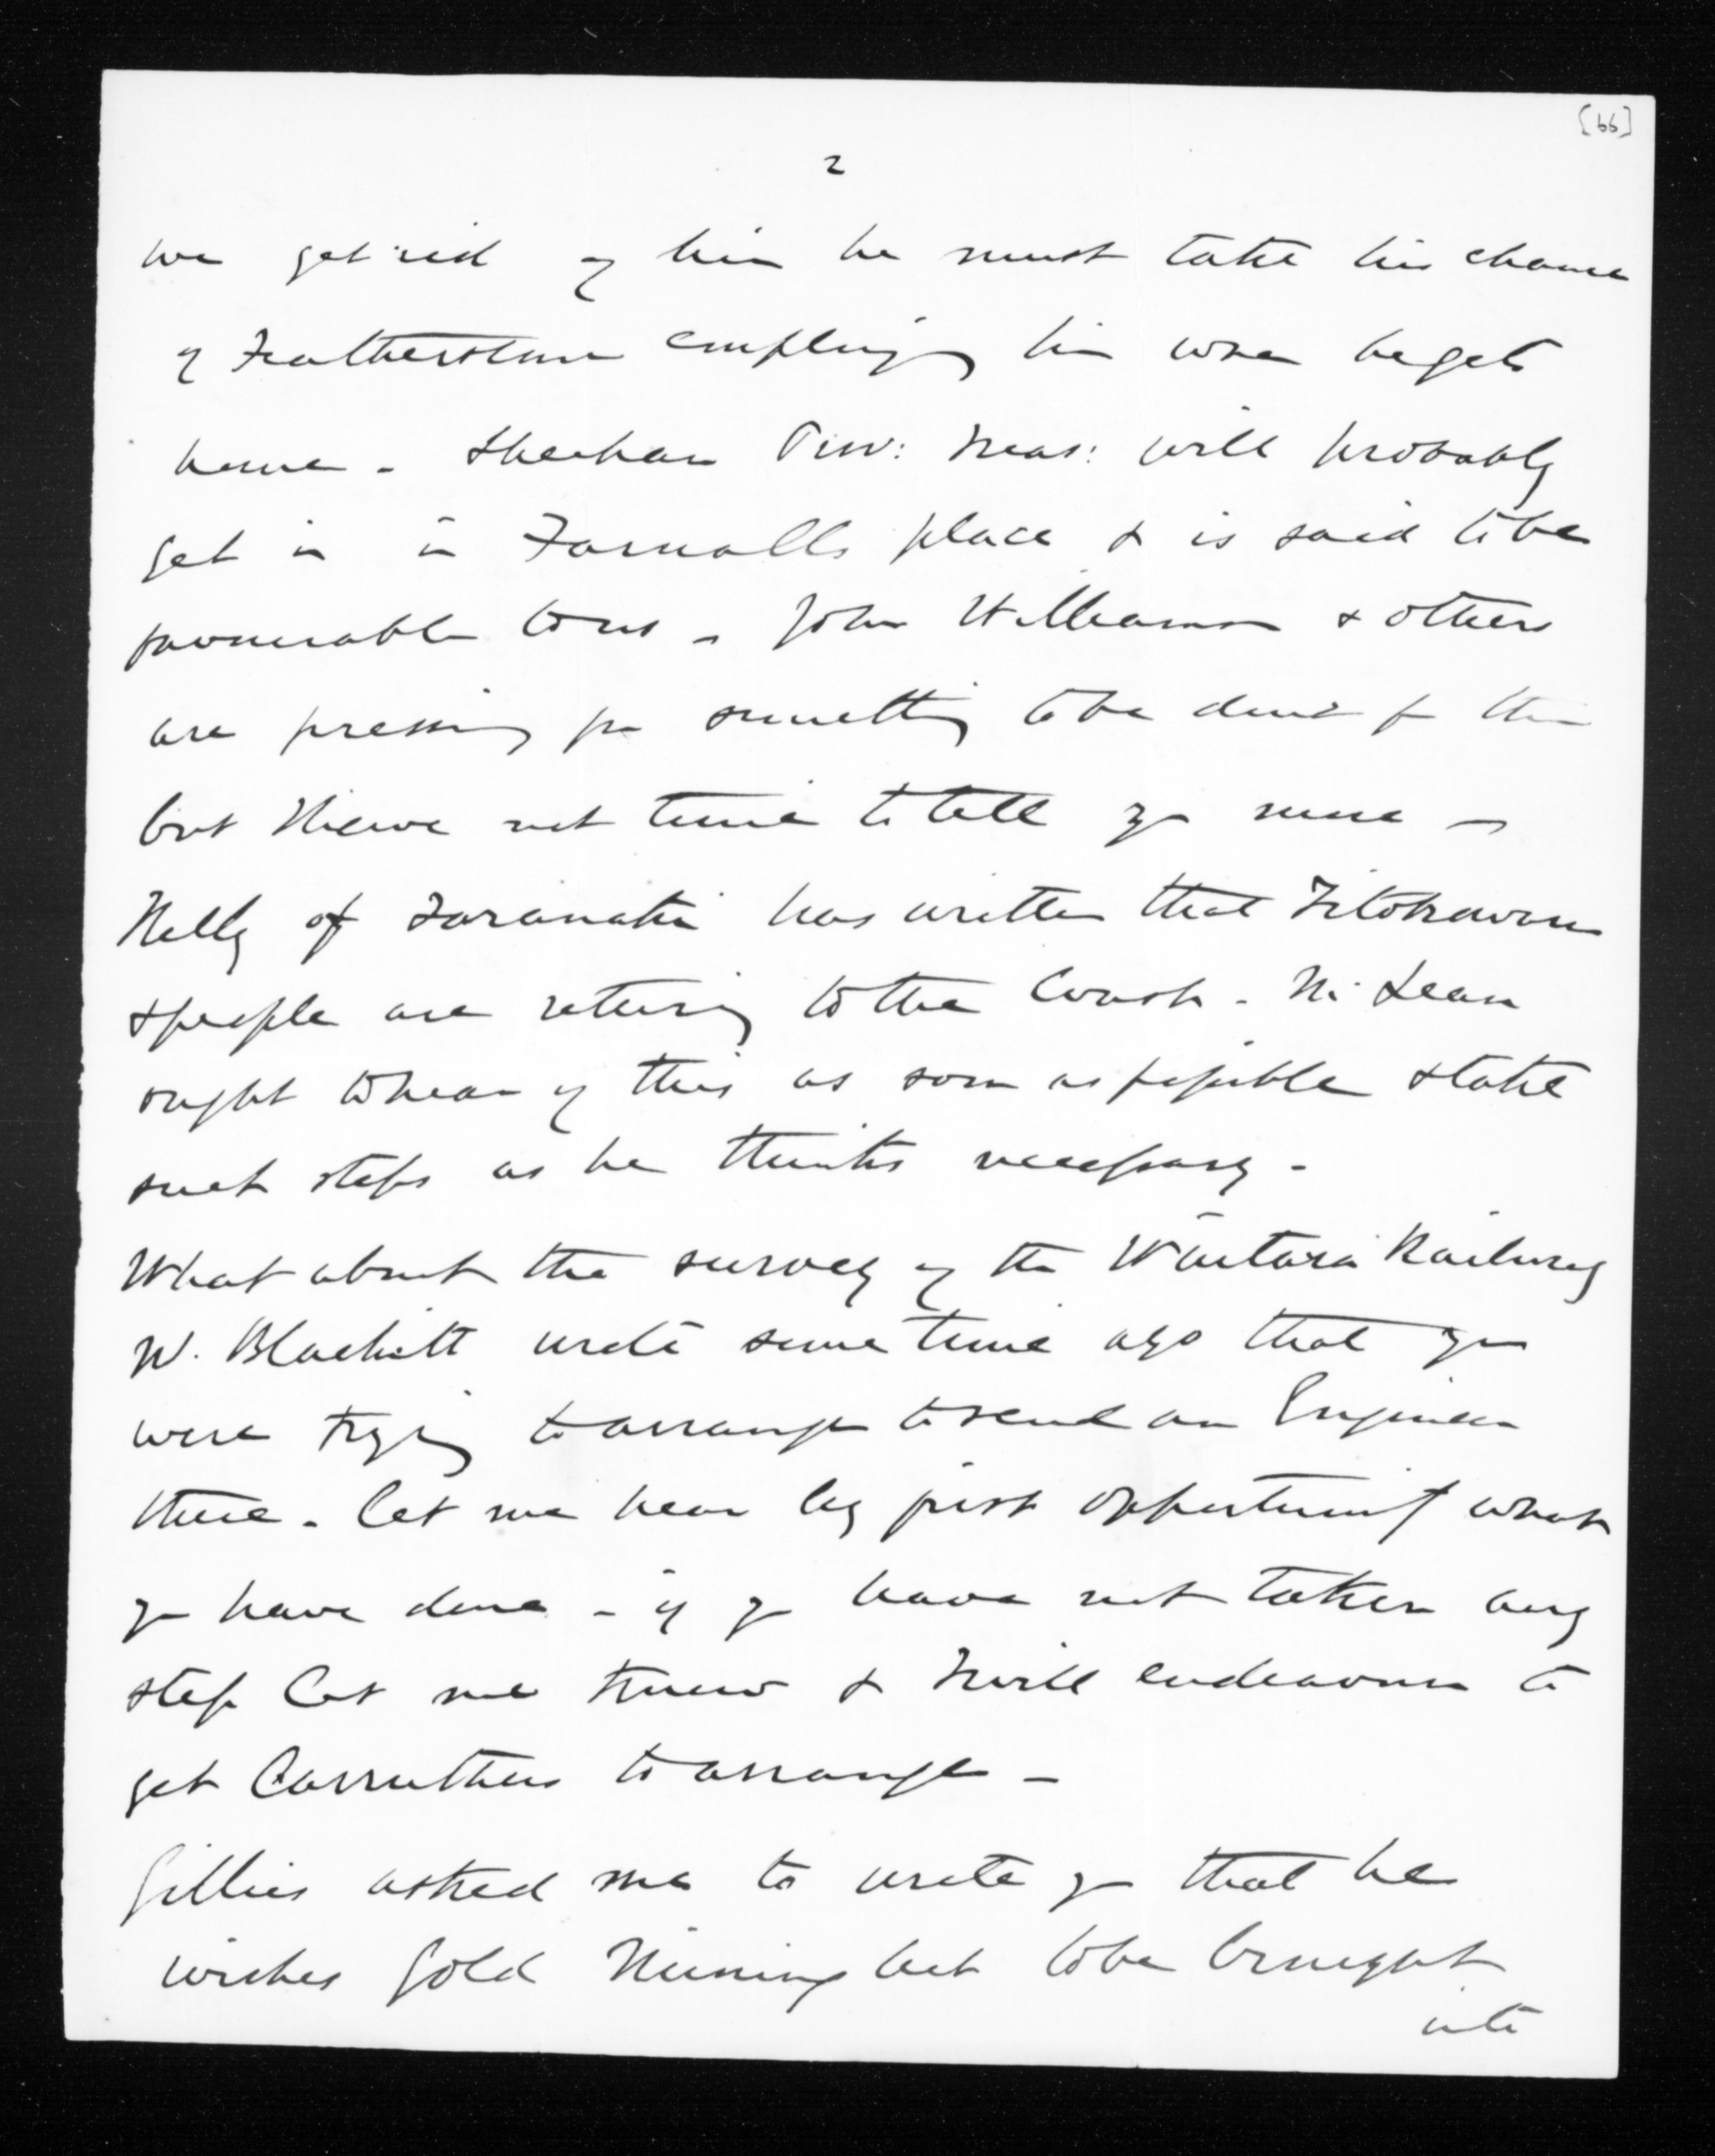 [66]
2
we get rid of him he must take his chance
of Featherston employing him when he gets
home - Sheehan Prov: Treas: will probably
get in in Farnalls place & is said to be
favourable to us - John Williamson & others
are pressing for something to be done for him
but I have not time to tell you more -
Kelly of Taranaki has written that Titokowaru
& people are returning to the Coast. McLean
ought to hear of this as soon as possible & take
such steps as he thinks necessary -
What about the survey of the Waitara Railway
Mr. Blackett wrote some time ago that you
were trying to arrange to send an Engineer
there. Let me hear by first opportunity what
you have done - if you have not taken any
step let me know & I will endeavour to
get Carruthers to arrange -
Gillies asked me to write you that he
wishes Gold Mining Act to be brought
into